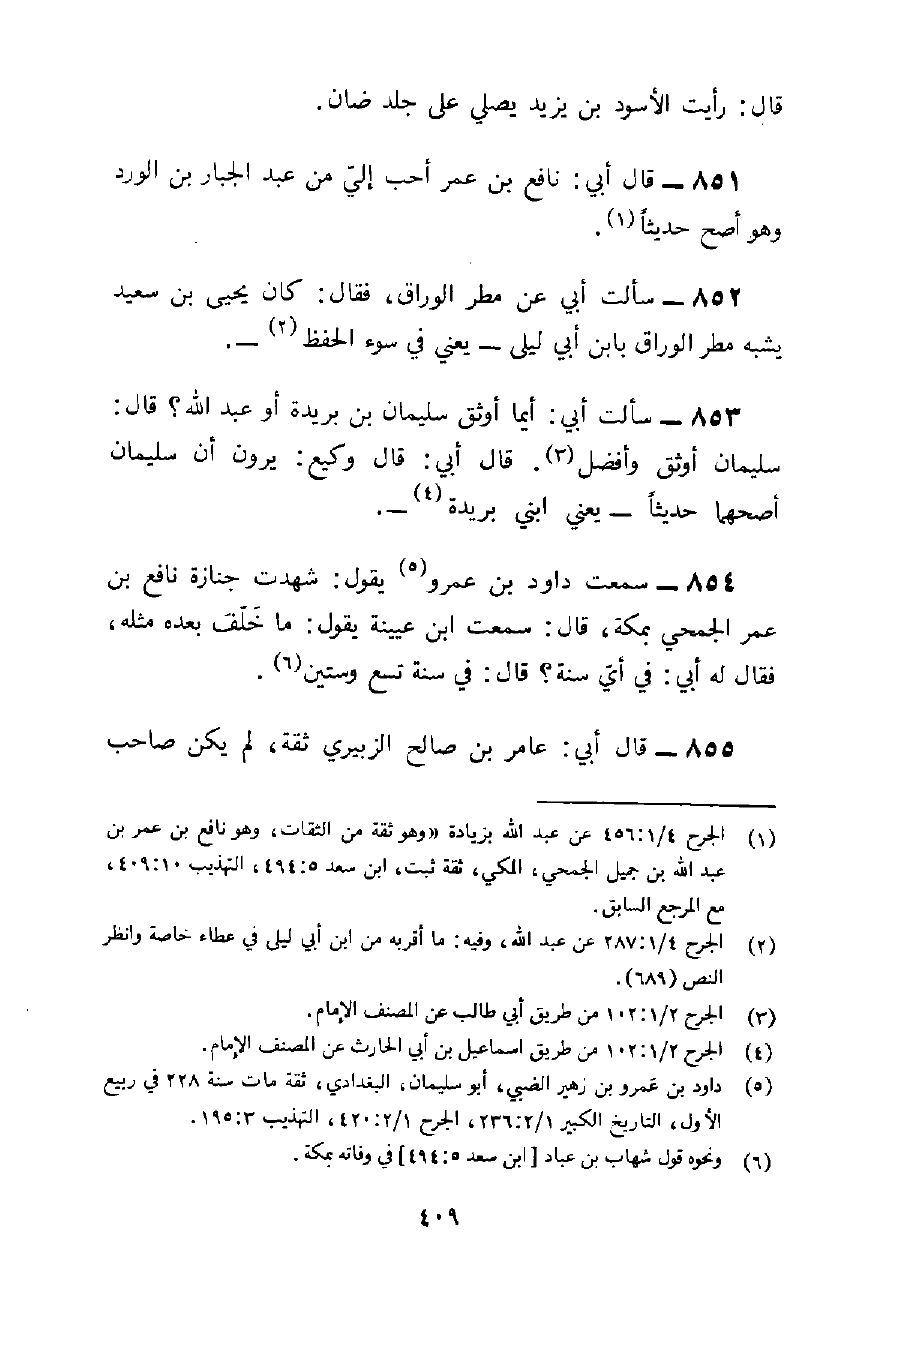 قال: رأيت الأسود بن يزيد يصلي على جلد ضان.
٨٥١ ــ قال أبي: نافع بن عمر أحب إليّ من عبد الجبار بن الورد
وهو أصح حديثاً(١).
٨٥٢ ــ سألت أبي عن مطر الوراق، فقال: كان يحيى بن سعيد
يشبه مطر الوراق بابن أبي ليلى ــ يعني في سوء الحفظ(٢) ــ.
٨٥٣ ــ سألت أبي: أيما أوثق سليمان بن بريدة أو عبد الله؟ قال:
سليمان أوثق وأفضل(٣). قال أبي: قال وكيع: يرون أن سليمان
أصحهما حديثاً ــ يعني ابني بريدة(٤) ــ.
٨٥٤ ــ سمعت داود بن عمرو(٥) يقول: شهدت جنازة نافع بن
عمر الجمحي بمكة، قال: سمعت ابن عيينة يقول: ما خَلَّفَ بعده مثله،
فقال له أبي: في أيّ سنة؟ قال: في سنة تسع وستين(٦).
٨٥٥ ــ قال أبي: عامر بن صالح الزبيري ثقة، لم يكن صاحب
(١) الجرح ٤٥٦:١/٤ عن عبد الله بزيادة «وهو ثقة من الثقات، وهو نافع بن عمر بن
عبد الله بن جميل الجمحي، المكي، ثقة ثبت، ابن سعد ٤٩٤:٥، التهذيب ٤٠٩:١٠،
مع المرجع السابق.
(٢) الجرح ٢٨٧:١/٤ عن عبد الله، وفيه: ما أقربه من ابن أبي ليلى في عطاء خاصة وانظر
النص (٦٨٩).
(٣) الجرح ١٠٢:١/٢ من طريق أبي طالب عن المصنف الإمام.
(٤) الجرح ١٠٢:١/٢ من طريق اسماعيل بن أبي الحارث عن المصنف الإمام.
(٥) داود بن عَمرو بن زهير الضبي، أبو سليمان، البغدادي، ثقة مات سنة ٢٢٨ في ربيع
الأول، التاريخ الكبير ٢٣٦:٢/١، الجرح ٤٢٠:٢/١، التهذيب ١٩٥:٣.
(٦) ونحوه قول شهاب بن عباد [ابن سعد ٤٩٤:٥] في وفاته بمكة.
٤٠٩